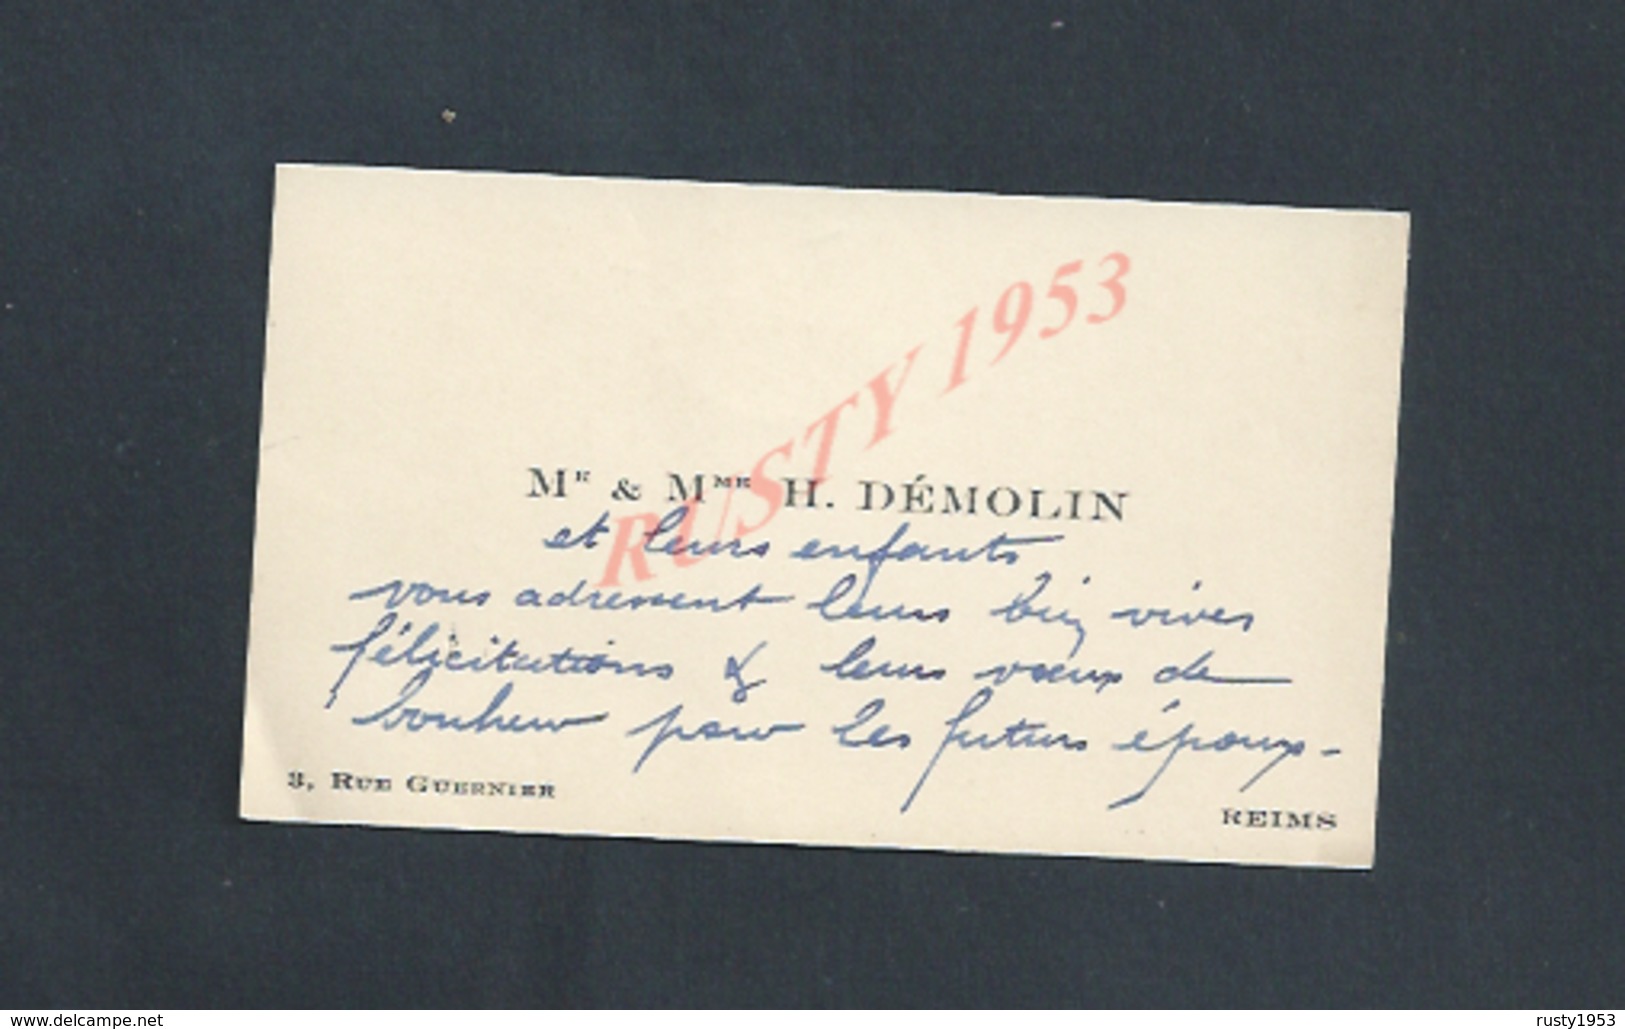 RUSTY 1953
Mr & Mme H. DÉMOLIN
et leurs enfants
vous adressent leurs bien vives
félicitations & leurs vœux de
bonheur pour les futurs époux -
3, RUE GUERNIER
REIMS
www.delcampe.net
rusty1953